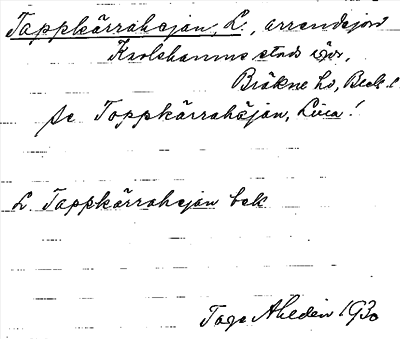 Tappkärrahejan, L., arrendejord
Karlshamns stads äor,
Bräkne hd, Blek. l.
se Toppkärrahejan, Lilla!
L. Tappkärrahejan bek
Tage Ahldén 1930